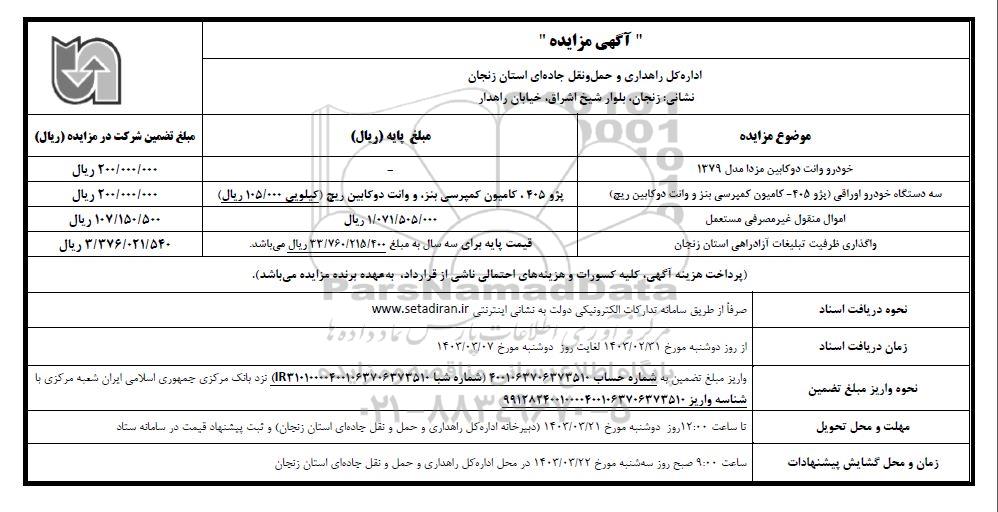 " آگهی مزایده "
اداره‌کل راهداری و حمل‌ونقل جاده‌ای استان زنجان
نشانی: زنجان، بلوار شیخ اشراق، خیابان راهدار
موضوع مزایده مبلغ پایه (ریال) مبلغ تضمین شرکت در مزایده (ریال)
خودرو وانت دوکابین مزدا مدل ۱۳۷۹ - ۲۰۰/۰۰۰/۰۰۰ ریال
سه دستگاه خودرو اوراقی (پژو ۴۰۵- کامیون کمپرسی بنز و وانت دوکابین ریچ) پژو ۴۰۵ ، کامیون کمپرسی بنز، و وانت دوکابین ریچ (کیلویی ۱۰۵/۰۰۰ ریال) ۲۰۰/۰۰۰/۰۰۰ ریال
اموال منقول غیرمصرفی مستعمل ۱/۰۷۱/۵۰۵/۰۰۰ ریال ۱۰۷/۱۵۰/۵۰۰ ریال
واگذاری ظرفیت تبلیغات آزادراهی استان زنجان قیمت پایه برای سه سال به مبلغ ۳۳/۷۶۰/۲۱۵/۴۰۰ ریال می‌باشد. ۳/۳۷۶/۰۲۱/۵۴۰ ریال
(پرداخت هزینه آگهی، کلیه کسورات و هزینه‌های احتمالی ناشی از قرارداد، به‌عهده برنده مزایده می‌باشد).
نحوه دریافت اسناد صرفاً از طریق سامانه تدارکات الکترونیکی دولت به نشانی اینترنتی www.setadiran.ir
زمان دریافت اسناد از روز دوشنبه مورخ ۱۴۰۳/۰۲/۳۱ لغایت روز دوشنبه مورخ ۱۴۰۳/۰۳/۰۷
نحوه واریز مبلغ تضمین واریز مبلغ تضمین به شماره حساب ۴۰۰۱۰۶۳۷۰۶۳۷۳۵۱۰ (شماره شبا IR۳۱۰۱۰۰۰۰۴۰۰۱۰۶۳۷۰۶۳۷۳۵۱۰) نزد بانک مرکزی جمهوری اسلامی ایران شعبه مرکزی با
شناسه واریز ۹۹۱۲۸۳۴۰۰۱۰۰۰۰۴۰۰۱۰۶۳۷۰۶۳۷۳۵۱۰
مهلت و محل تحویل تا ساعت ۱۲:۰۰روز دوشنبه مورخ ۱۴۰۳/۰۳/۲۱ (دبیرخانه اداره‌کل راهداری و حمل و نقل جاده‌ای استان زنجان) و ثبت پیشنهاد قیمت در سامانه ستاد
زمان و محل گشایش پیشنهادات ساعت ۹:۰۰ صبح روز سه‌شنبه مورخ ۱۴۰۳/۰۳/۲۲ در محل اداره‌کل راهداری و حمل و نقل جاده‌ای استان زنجان
ParsNamadData
مرکز فرآوری اطلاعات پارس نماد داده‌ها
پایگاه اطلاع رسانی مناقصه و مزایده
۰۲۱-۸۸۳۴۹۶۷۰-۵